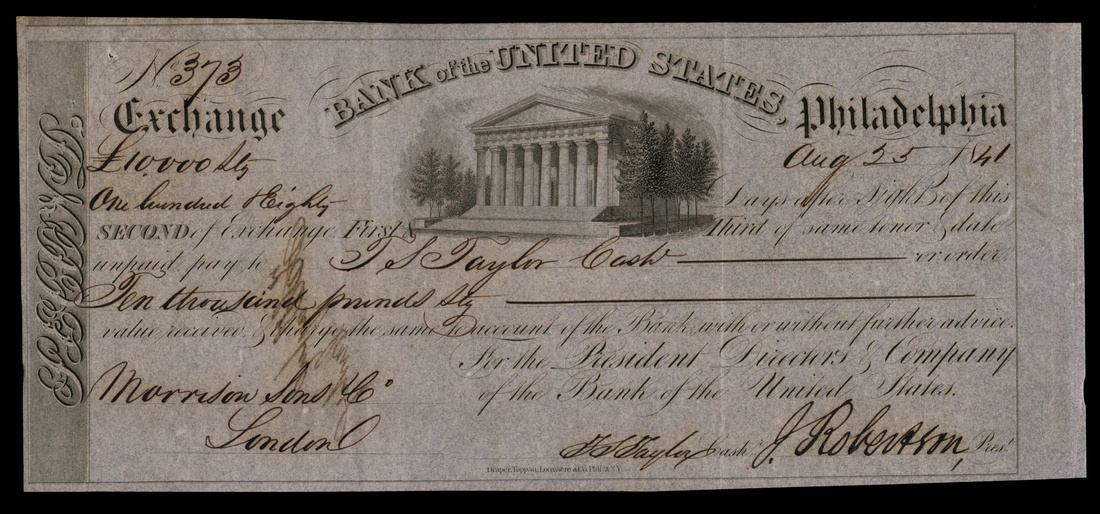 No. 373
BANK of the UNITED STATES,
Exchange
Philadelphia
£10,000 Stg
Aug 25 1841
One hundred & Eighty Days after Sight of this
SECOND of Exchange First & Third of same tenor & date
unpaid pay to T S Taylor Cashr or order,
Ten thousand pounds Stg
value received, & charge the same to account of the Bank, with or without further advice.
For the President Directors & Company
of the Bank of the United States.
Morrison Sons & Co
London
T S Taylor Cashr. J. Robertson, Prest.
Draper, Toppan, Longacre & Co. Phila. & N.Y.
SECOND